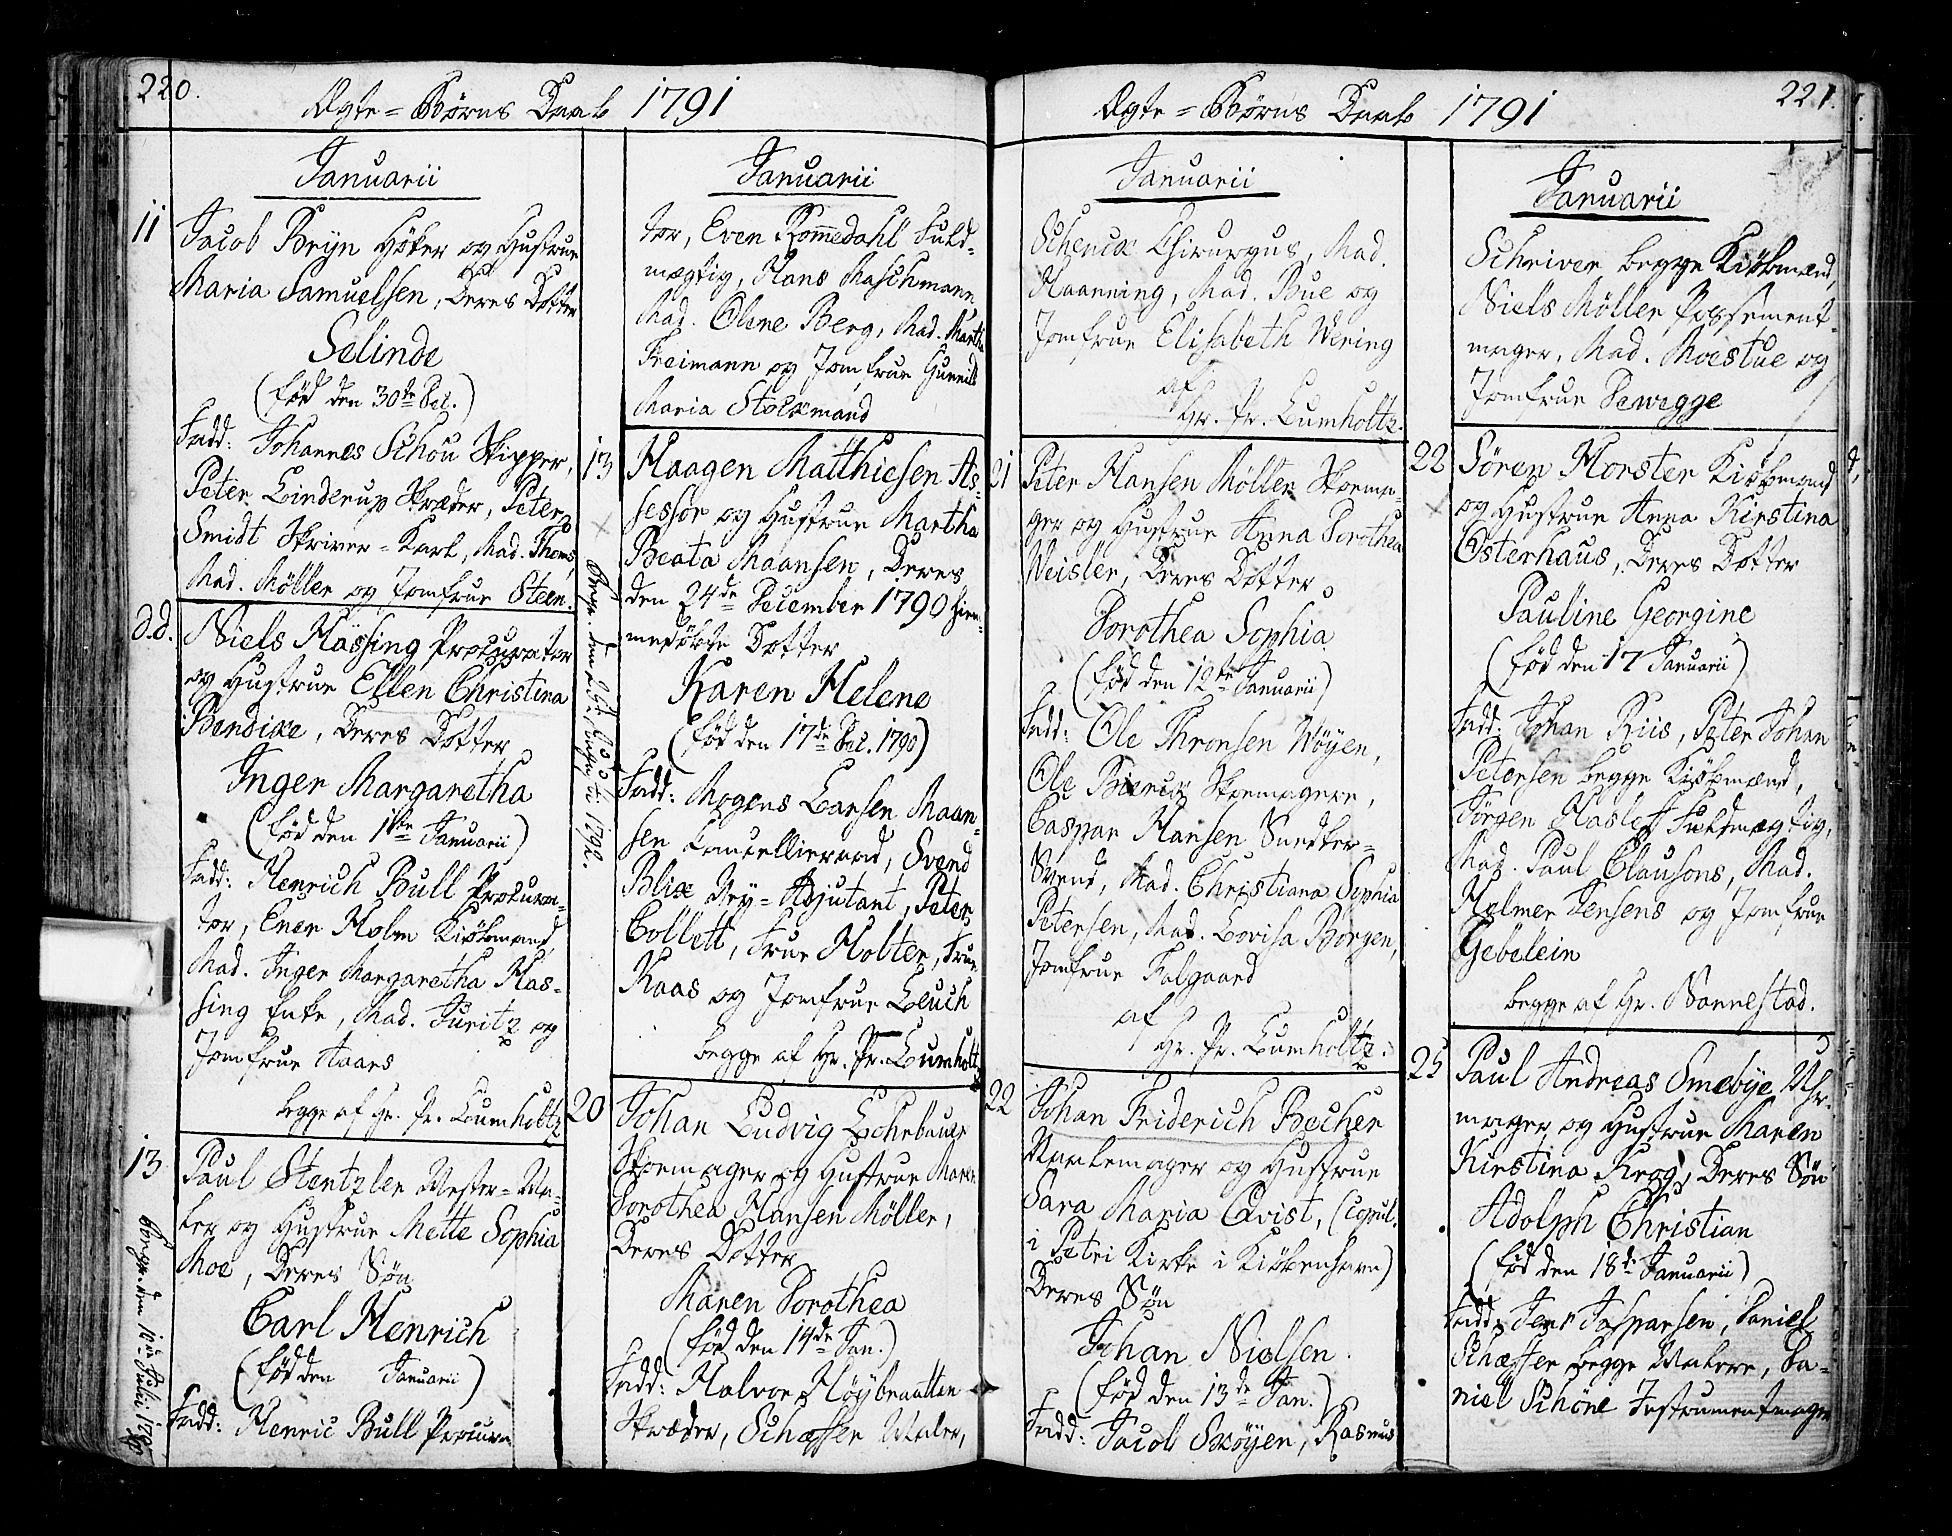 220.
Ægte = Børns Daab 1791
Januarii
11 Jacob Brÿn Höker og Hustrue
Maria Samuelsen, Deres Dotter
Selinde
(fød den 30te Dec.)
Fadd: Johannes Schou Skipper,
Peter Linderup Skræder, Peter
Smidt Skriver=Karl, Mad. Thoms,
Mad. Möller og Jomfrue Steen.
d.d. Niels Hassing Procurator
og Hustrue Ellen Christina
Bendixe, Deres Dotter
Inger Margaretha
(fød den 1te Januarii)
Fadd: Henrich Bull Procura-
tor, Ener Holm Kiöbmand,
Mad. Inger Margaretha Has-
sing Enke, Mad. Juritz og
Jomfrue Aaars
begge af Hr. Pr. Lumholtz
13 Paul Stentzler Mester-Ma-
ler og Hustrue Mette Sophia
Moe, Deres Søn
Carl Henrich
(fød den Januarii)
Fadd: Henric Bull Procura
Januarii
tor, Even Rømedahl Fuld-
mægtig, Hans Maschmann
Mad. Olene Berg, Mad. Marthe
Freimann og Jomfrue Gunnild
Maria Stockmand
13 Haagen Matthiesen As-
sessor og Hustrue Martha
Beata Maansen, Deres
den 24de December 1790 hiem-
medøbte Dotter
Karen Helene
(fød den 17de Dec. 1790)
Fadd: Mogens Larsen Maan-
sen Cancellieraad, Svend
Blix Ny-Adjutant, Peter
Collett, Frue Holter, Frue
Kaas og Jomfrue Leuch
begge af Hr. Pr. Lumholtz
20 Johan Ludvig Lohrbauer
Skoemager og Hustrue Maren
Dorothea Hansen Möller,
Deres Dotter
Maren Dorothea
(fød den 14de Jan.)
Fadd: Halvor Höybraatten
Skræder, Schæffer Maler,
221.
Ægte = Børns Daab 1791
Januarii
Schenck Chirurgus, Mad.
Haanning, Mad. Bue og
Jomfrue Elisabeth Wering
af
Hr. Pr. Lumholtz.
21 Peter Hansen Möller Skoema-
ger og Hustrue Anna Dorothea
Weisler, Deres Dotter
Dorothea Sophia
(fød den 12te Januarii)
Fadd: Ole Thronsen Wøyen,
Ole Bierck Skoemagere,
Caspar Hansen Snedker-
Svend, Mad. Christiana Sophia
Petersen, Mad. Lovisa Borgen,
Jomfrue Falgaard
af
Hr. Pr. Lumholtz.
22 Johan Friderich Becher
og Hustrue
Sara Maria Qvist, (Copul.
i Petri Kirke i Kiöbenhavn)
Deres Søn
Johan Nielsen.
(fød den 13de Jan.)
Fadd: Jacob Skøyen, Rasmus
Januarii
Schriver begge Kiöbmænd,
Niels Möller Possement-
mager, Mad. Moestue og
Jomfrue Dewegge
22 Sören Horster Kiöbmand
og Hustrue Anna Kirstina
Osterhaus, Deres Dotter
Pauline Georgine
(fød den 17 Januarii)
Fadd: Johan Riis, Peter Johan
Petersen begge Kiöbmænd,
Jørgen Haslef Fuldmægtig,
Mad. Paul Clausons, Mad.
Helmer Jensens og Jomfrue
Gebelein
begge af Hr. Nannestad.
25 Paul Andreas Smebÿe Uhr-
mager og Hustrue Maren
Kirstina Krog, Deres Søn
Adolph Christian
(fød den 18de Januarii)
Fadd: Jens Jaspersen, Daniel
Schæffer begge Malere, Da-
niel Schöne Instrumentmager